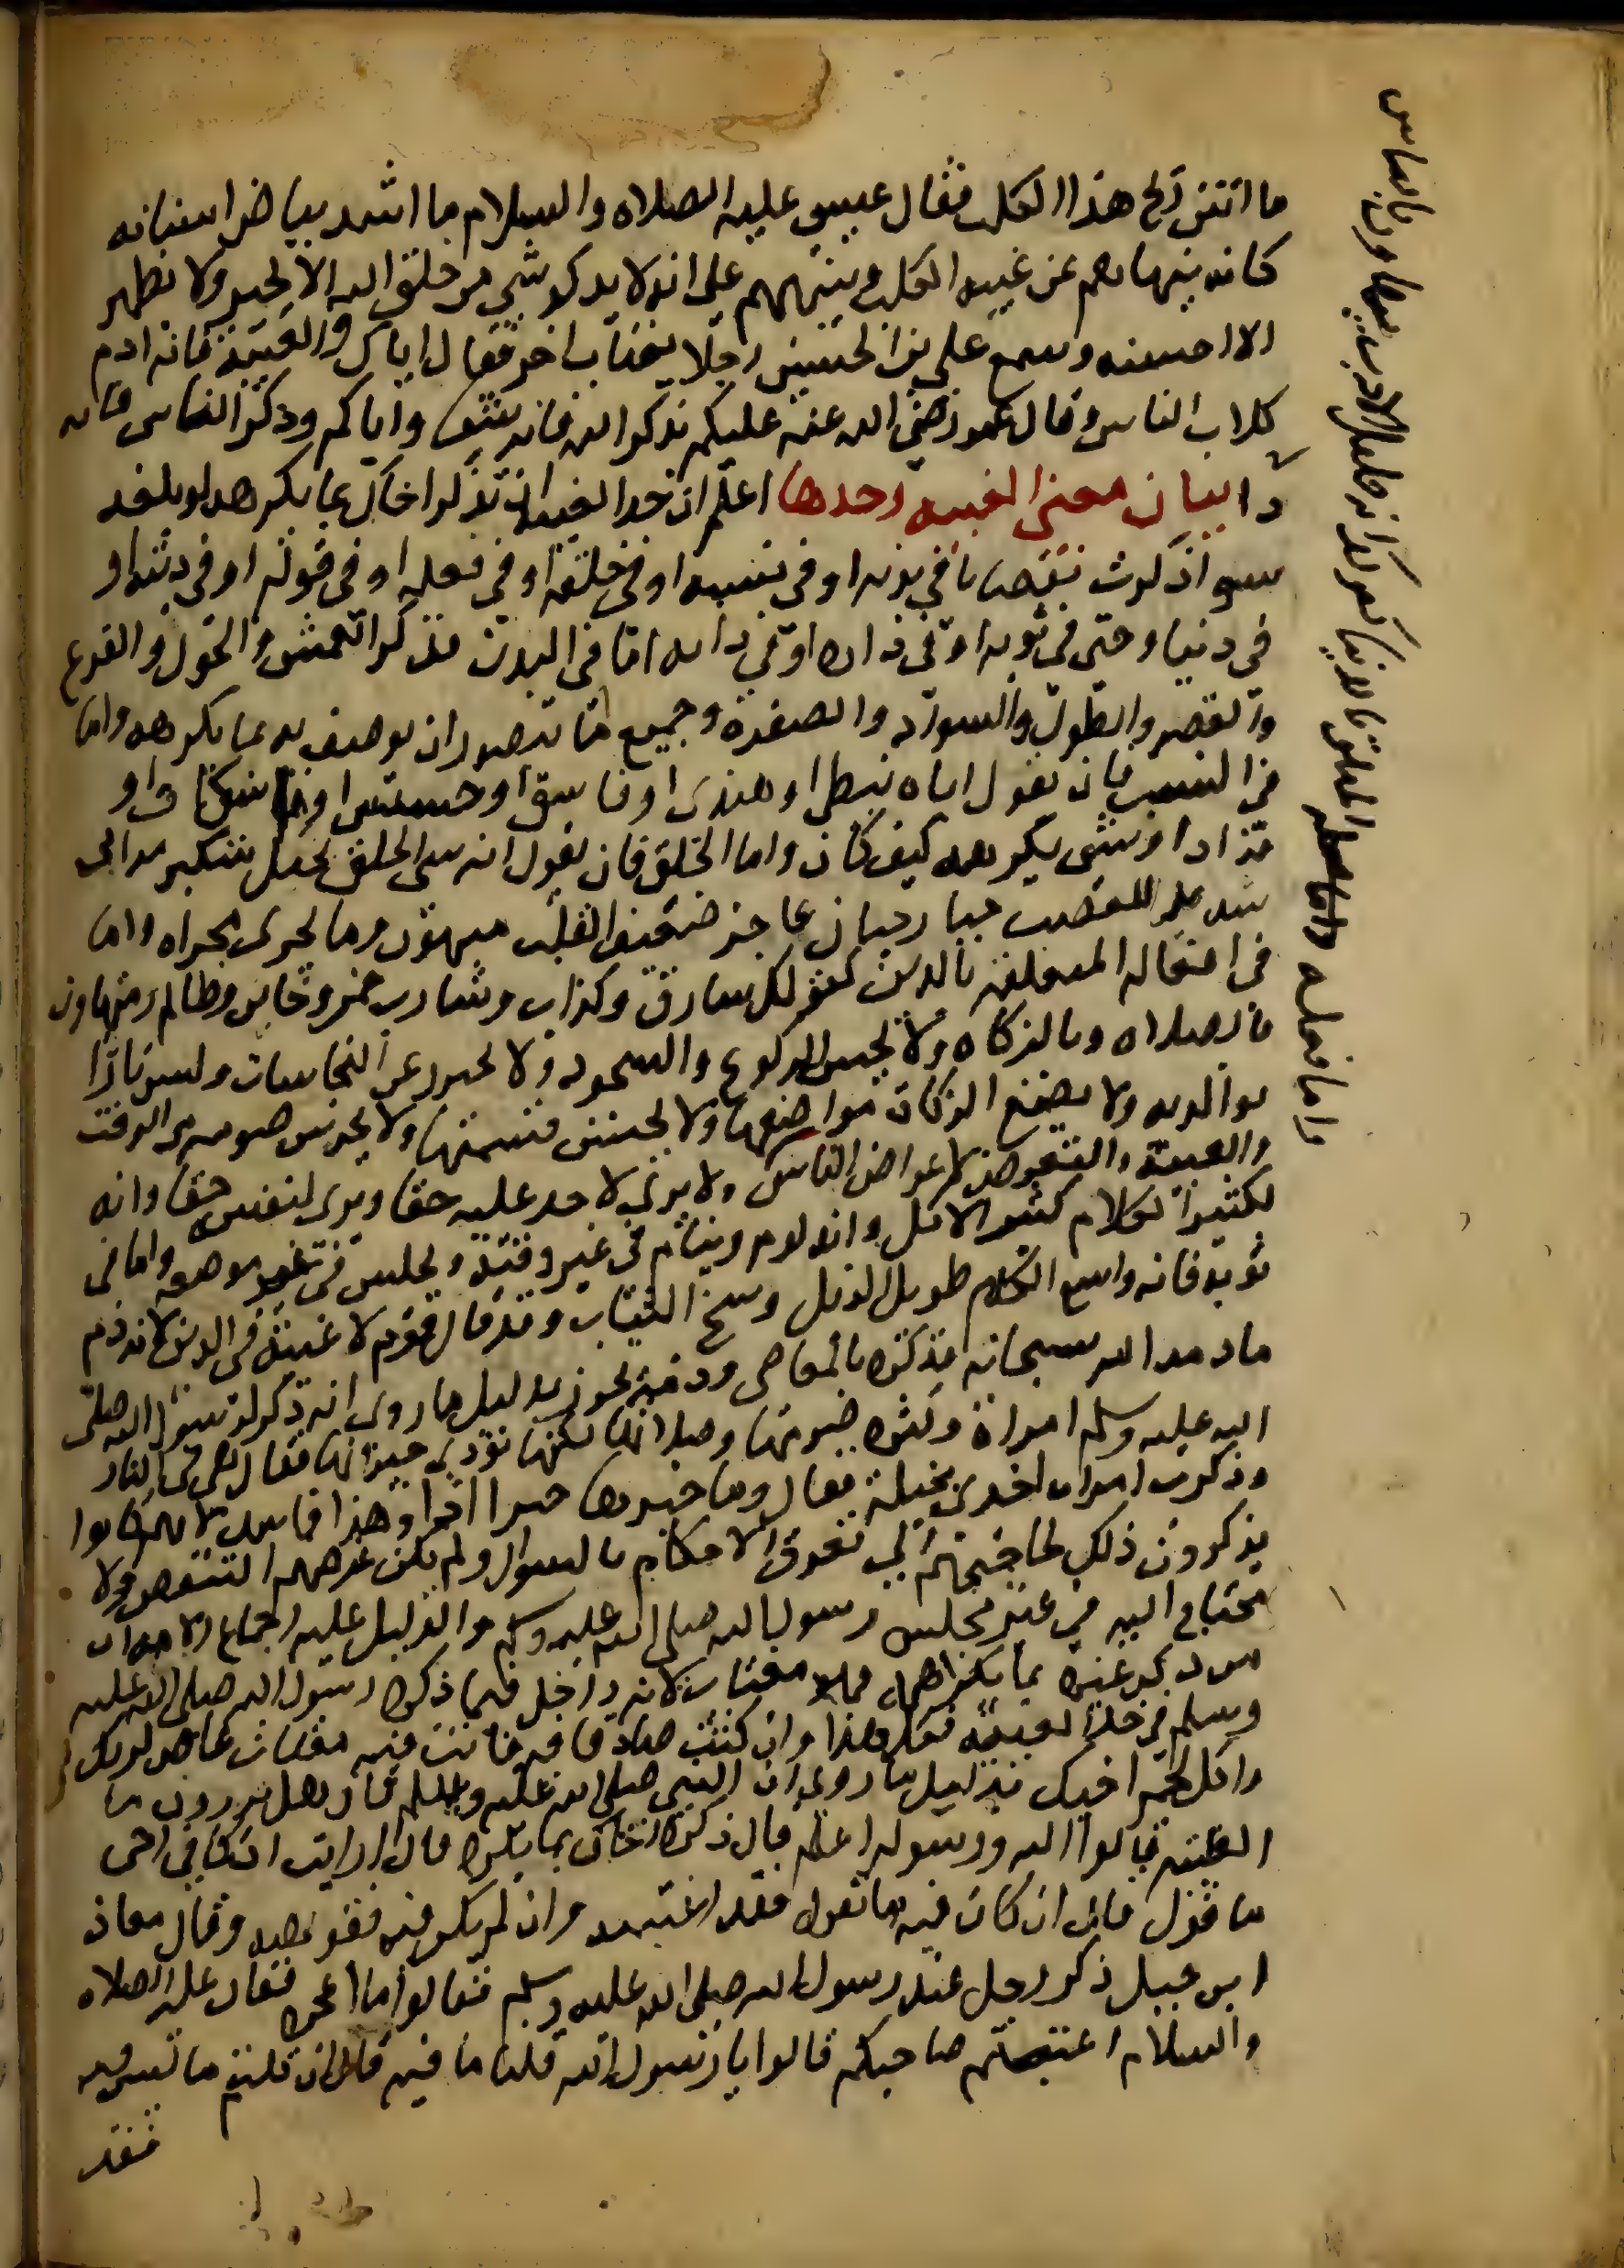 ما انتن ريح هذا الكلب فقال عيسى عليه الصلاه والسلام ما اشد بياض اسنانه
كانه ينهاهم عن غيبه الكلب وينبههم على انه لا يذكر شي من خلق الله الا بخير ولا يظهر
الا احسنه وسمع علي بن الحسين رجلا يغتاب اخر فقال اياك والغيبة فانه ادم
كلاب الناس وقال عمر رضي الله عنه عليكم بذكر الله فانه شفا واياكم وذكر الناس فانه
دا بيان معنى الغيبه وحدها اعلم ان حد الغيبه ان تذكر اخاك بما يكرهه لو بلغه
سوا ذكرت نقصانا في بدنه او في نسبه او في خلقه او في فعله او في قوله او في دينه او
في دنياه حتى في ثوبه او في داره او في دابه اما في البدن فذكر العمش والحول والقرع
والقصر والطول والسواد والصفرة وجميع ما يتصور ان يوصف به بما يكرهه واما
في النسب فان يقول اباه نبطي او هندي او فاسق او خسيس او اسكاف او
او شي يكرهه كيف كان واما الخلق فان يقول انه سي الخلق بخيل متكبر مراى
شديد الغضب جبار جبان عاجز ضعيف القلب متهور وما يجري مجراه واما
في افعاله المتعلقة بالدين كقولك سارق وكذاب وشارب خمر وخاين وظالم ومتهاون
بالصلاه وبالزكاه ولا يحسن الركوع والسجود ولا يحترز عن النجاسات وليس بارا
بوالديه ولا يضع الزكاة مواضعها ولا يحسن قسمتها ولا يحرس صومه من الرفث
والغيبة والتعرض لاعراض الناس ولا يرى لاحد عليه حقا ويرى لنفسه حقا وانه
لكثير الكلام كثير الاكل وانه نووم وينام في غير وقته ويجلس في غير موضعه واما في
ثوبه فانه واسع الكم طويل الذيل وسخ الثياب وقد قال قوم لا غيبة في الدين لانه ذم
ما ذمه الله سبحانه فذكره بالمعاصي وذمه يجوز بدليل ما روى انه ذكر لرسول الله صلى
الله عليه وسلم امراة وكثرة صومها وصلاتها لكنها تؤذي جيرانها فقال هي في النار
وذكرت امراه اخرى بخيلة فقال وما خيرها اذا وهذا فاسد لانهم كانوا
يذكرون ذلك لحاجتهم الي تعرف الاحكام بالسوال ولم يكن غرضهم التنقص ولا
يحتاج اليه في غير مجلس رسول الله صلى الله عليه وسلم والدليل عليه اجماع الامه ان
من ذكر غيره بما يكرهه فهو مغتاب لانه داخل فيما ذكره رسول الله صلى الله عليه
وسلم في حد الغيبة فكل هذا وان كنت صادقا فيه فانت فيه مغتاب عاص لربك
واكل لحم اخيك بدليل ما روى ان النبي صلى الله عليه وسلم قال هل تدرون ما
الغيبه قالوا الله ورسوله اعلم قال ذكرك اخاك بما يكره قال ارايت ان كان في اخي
ما اقول قال ان كان فيه ما تقول فقد اغتبته وان لم يكن فيه فقد بهته وقال معاذ
ابن جبل ذكر رجل عند رسول الله صلى الله عليه وسلم فقالوا ما اعجزه فقال عليه الصلاه
والسلام اغتبتم صاحبكم قالوا يا رسول الله قلنا ما فيه قال ان قلتم ما ليس فيه
فقد
واما فعله
المتعلق بالدنيا كقولك انه قليل الادب متهاون بالناس